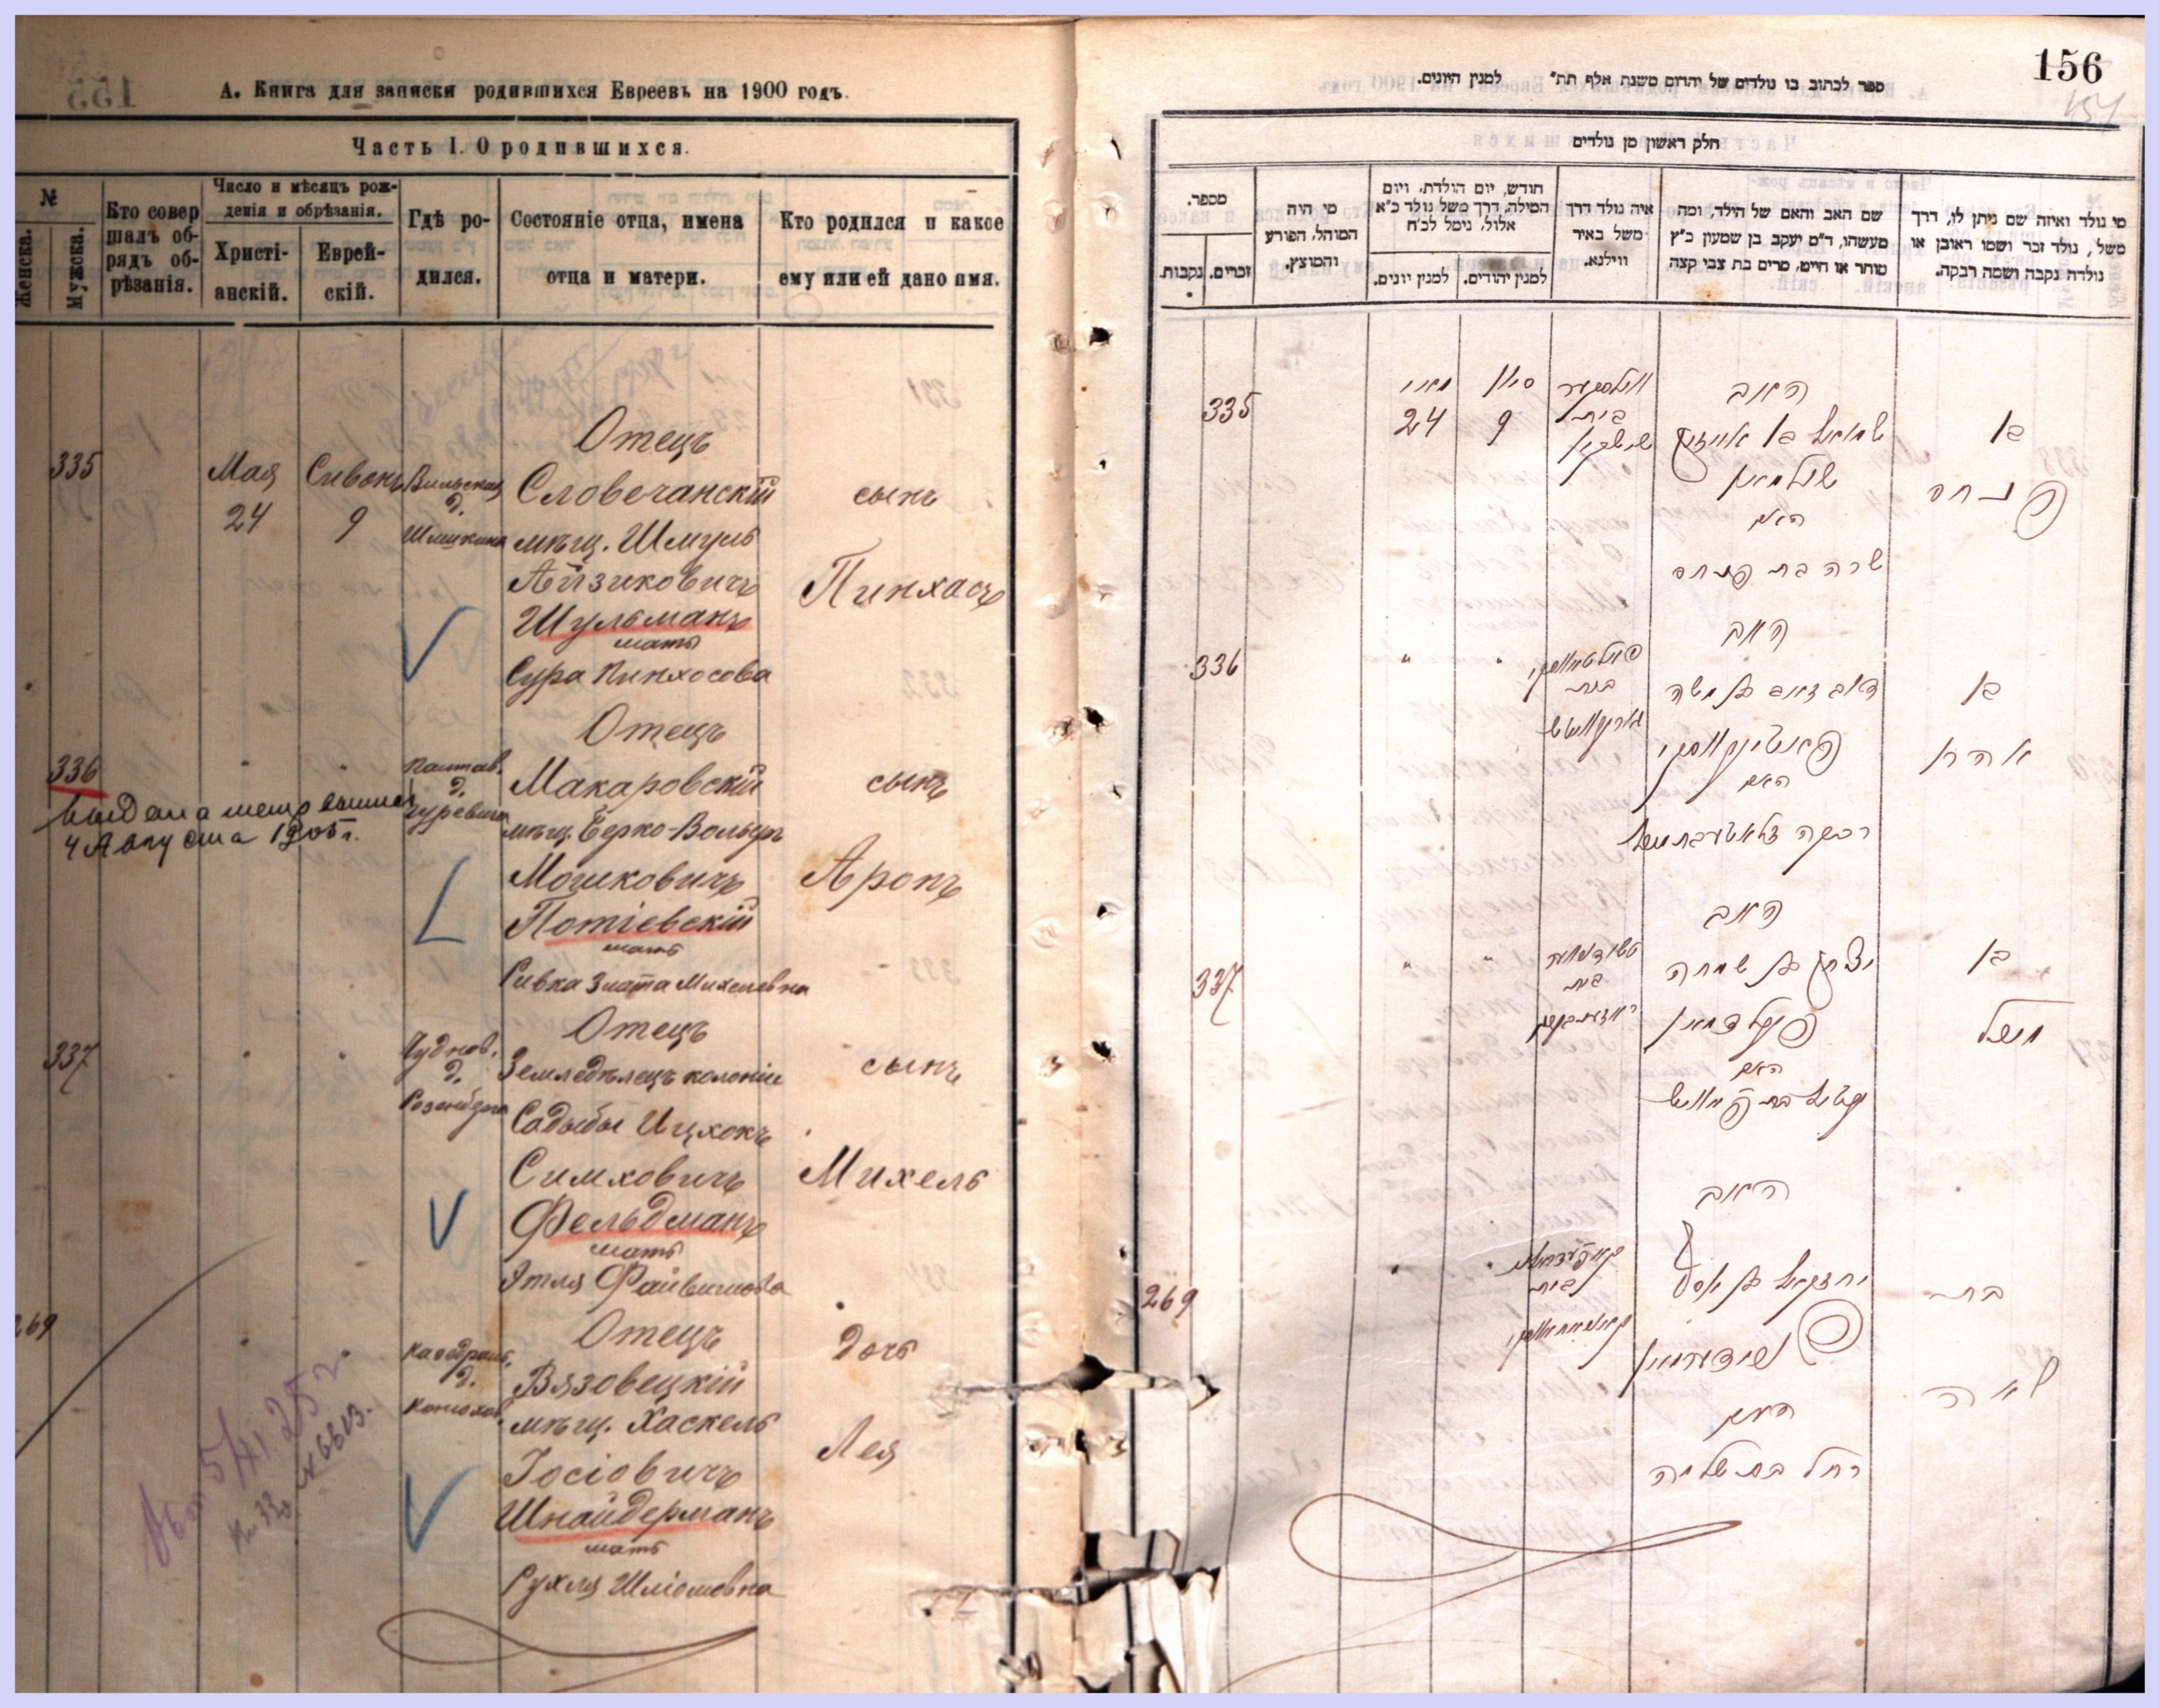 А. Книга для записки родившихся Евреевъ на 1900 годъ.
Часть I. О родившихся.
№
Женска.
Мужска.
Кто совер
шалъ об-
рядъ об-
рѣзанія.
Число и мѣсяцъ рож-
денія и обрѣзанія.
Христі-
анскій.
Еврей-
скій.
Гдѣ ро-
дился.
Состояніе отца, имена
отца и матери.
Кто родился и какое
ему или ей дано имя.
335
Мая
24
Сивонъ
9
Вильская
д.
Шишкина
Отецъ
Словечанскій
мѣщ. Шмуль
Айзиковичъ
Шульманъ
мать
Сура Пинхосова
сынъ
Пинхасъ
336
4 Августа 1905 г.
Полтав.
д.
Гуревича
Отецъ
Макаровскій
мѣщ. Берко-Вольфъ
Мошковичъ
Потіевскій
мать
Ривка Злата Михелевна
сынъ
Аронъ
337
Чуднов.
д.
Розенберга
Отецъ
Земледѣлецъ колоніи
Садыбы Ицхокъ
Симховичъ
Фельдманъ
мать
Этля Файвишова
сынъ
Михель
269
Кафедраль.
д.
Конюхов.
Отецъ
Вязовецкій
мѣщ. Хаскель
Іосіовичъ
Шнайдерманъ
мать
Рухля Шліомовна
Дочь
Лея
№ 6613.
156
ספר לכתוב בו נולדים של יהדום משנת אלף תת״ למנין היונים.
חלק ראשון מן נולדים
מספר.
זכרים.
נקבות.
מי היה
המוהל, הפורע
והמוצץ.
חודש, יום הולדת, ויום
המילה, דרך משל נולד כ״א
אלול, נימל לכ״ח
למנין יונים.
למנין יהודים.
איה נולד דרך
משל באיר
ווילנא.
שם האב והאם של הילד, ומה
מעשהו, ד״מ יעקב בן שמעון כ״ץ
סוחר או חייט, מרים בת צבי קצה
מי נולד ואיזה שם ניתן לו, דרך
משל, נולד זכר ושמו ראובן או
נולדה נקבה ושמה רבקה.
335
מאיי
24
סיון
9
ווילסקער
בית
שישקין
האב
שמואל בן אייזיק
שולמאן
האם
שרה בת פנחס
בן
פנחס
336
"
"
בית
האב
דוב זאב בן משה
פאטיעווסקי
האם
רבקה זלאטע בת מיכל
בן
אהרן
337
"
"
בית
האב
יצחק בן שמחה
פעלדמאן
האם
עטיל בת פייוויש
בן
מיכל
269
"
"
בית
האב
יחזקאל בן יוסף
שניידערמאן
האם
רחל בת שלמה
בת
לאה